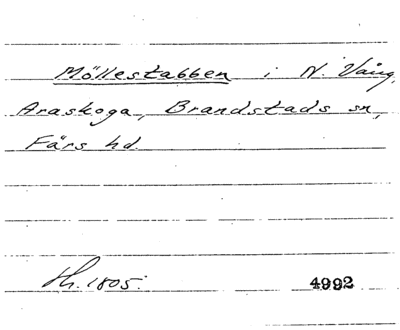 Möllestabben i N. Vång,
Araskoga, Brandstads sn,
Färs hd.
Sk. 1805. 4992